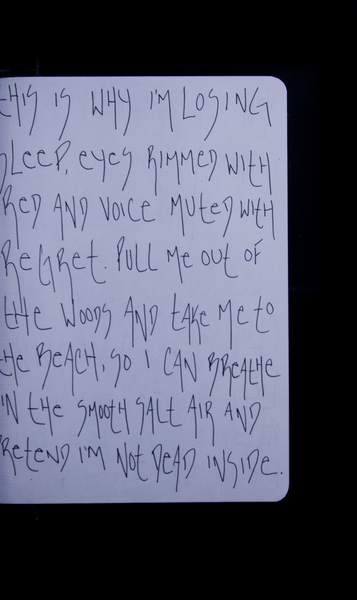 THIS IS WHY I'M LOSING
SLEEP, EYES RIMMED WITH
RED AND VOICE MUTED WITH
REGRET. PULL ME OUT OF
THE WOODS AND TAKE ME TO
THE BEACH, SO I CAN BREATHE
IN THE SMOOTH SALT AIR AND
PRETEND I'M NOT DEAD INSIDE.